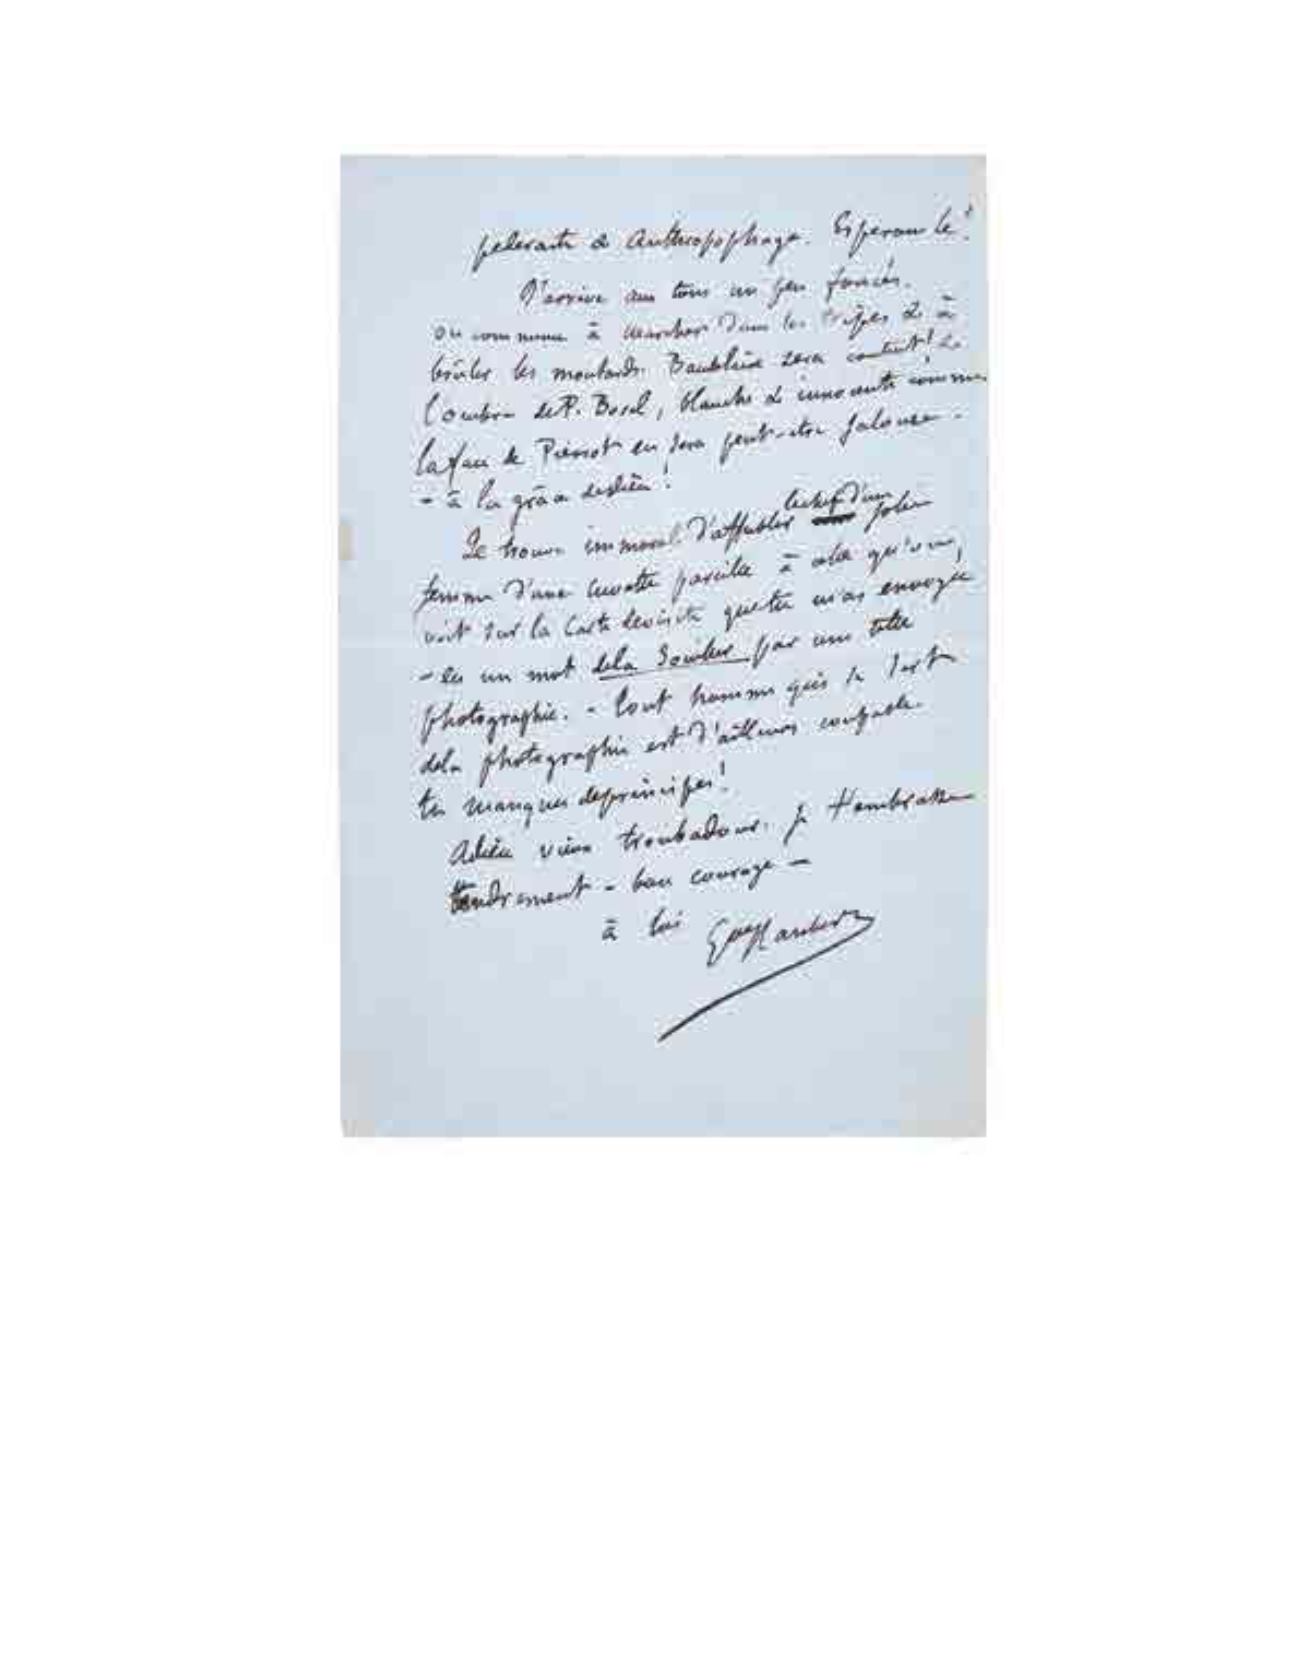 pédéraste & anthropophage. Espérons le!
J'arrive aux tons un peu foncés.
on commence à marcher dans les tripes & à
brûler les moutards. Baudelaire sera content! &
l'ombre de P. Borel, blanche & innocente comme
la face de Pierrot en sera peut-être jalouse.
- à la grâce de dieu!
Je trouve immoral d'affubler le chef d'une jolie
femme d'une cuvette pareille à celle qu'on
voit sur la carte de visite que tu m'as envoyée
- en un mot de la souiller par une telle
photographie. - tout homme qui se sert
de la photographie est d'ailleurs coupable.
tu manques de principes!
Adieu vieux troubadour. je t'embrasse
tendrement - bon courage -
à toi Gve Flaubert